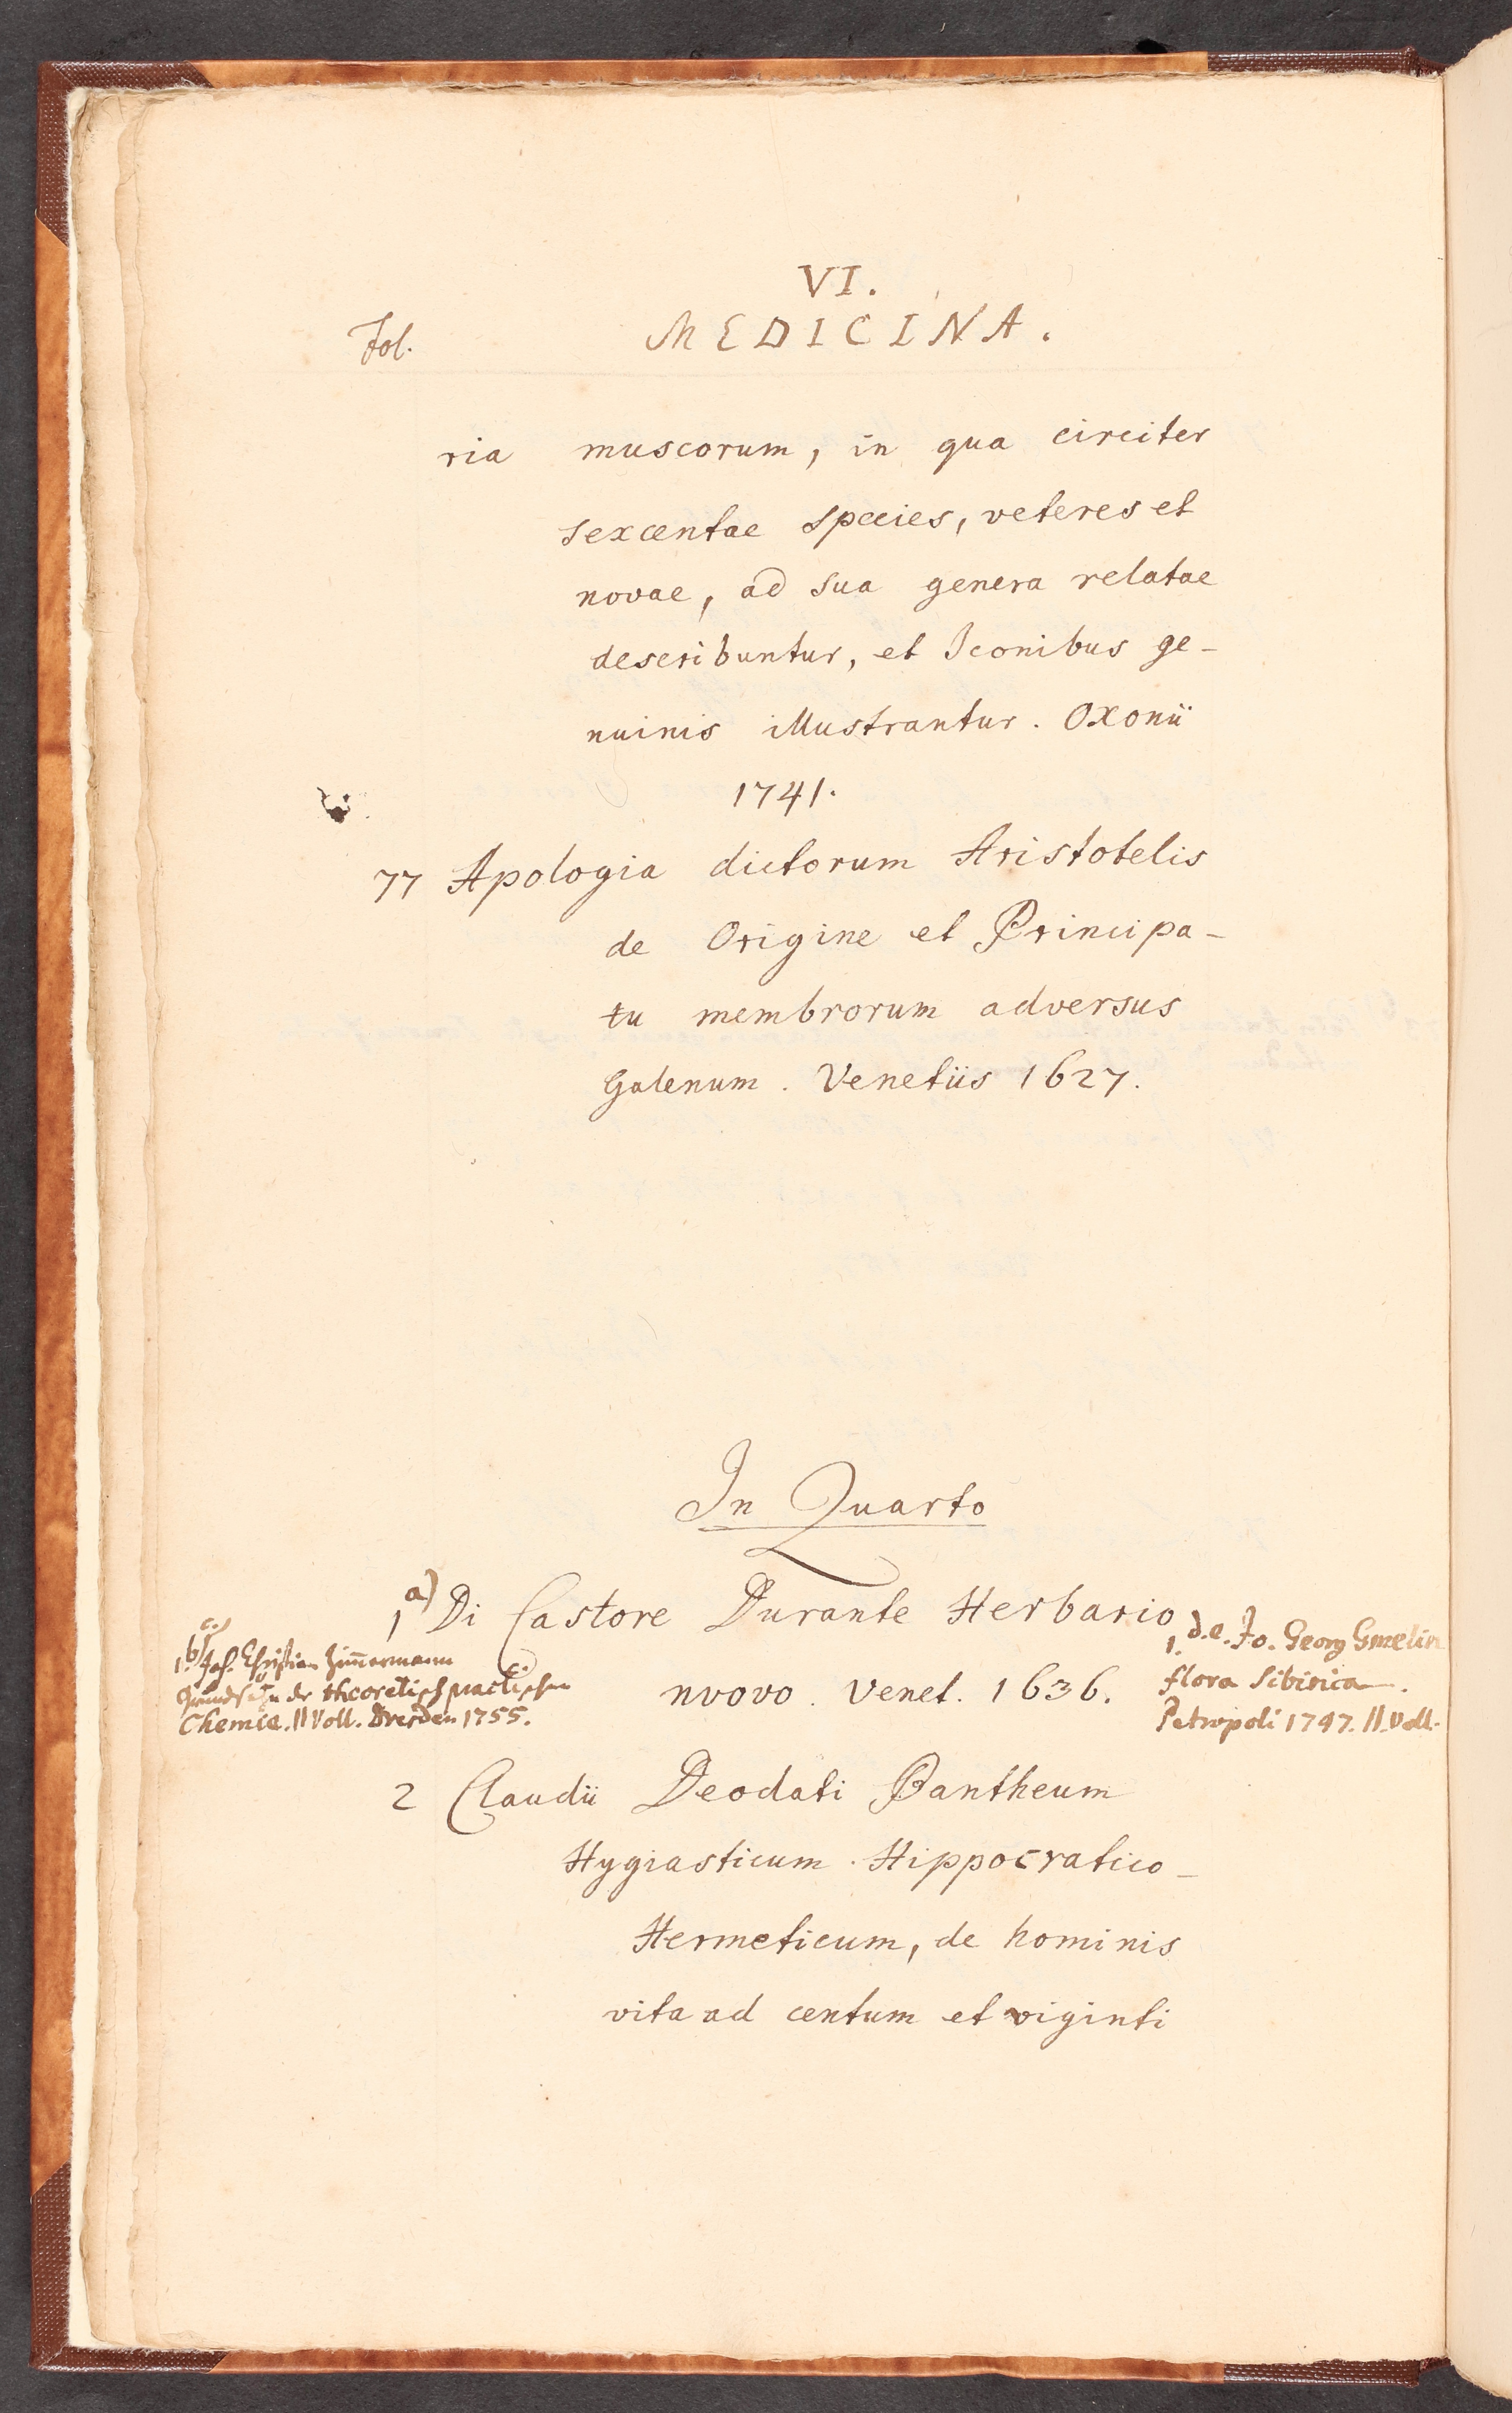 VI.
Fol. MEDICINA.
ria muscorum, in qua circiter
sexcentae species, veteres et
novae, ad sua genera relatae
describuntur, et Iconibus ge-
nuinis illustrantur. Oxonii
1741.
77 Apologia dictorum Aristotelis
de Origine et Principa-
tu membrorum adversus
Galenum. Venetiis 1627.
In Quarto
1 a) Di Castore Durante Herbario
nvovo. Venet. 1636.
c.)
1. b) Joh. Christian Zim̄ermann
Grundsätze der theoretisch practischen
Chemie. II Voll. Dresden 1755.
1. d.e. Jo. Georg Gmelin
flora Sibirica.
Petropoli 1747. II. Voll.
2 Claudii Deodati Pantheum
Hygiasticum. Hippocratico-
Hermeticum, de hominis
vita ad centum et viginti